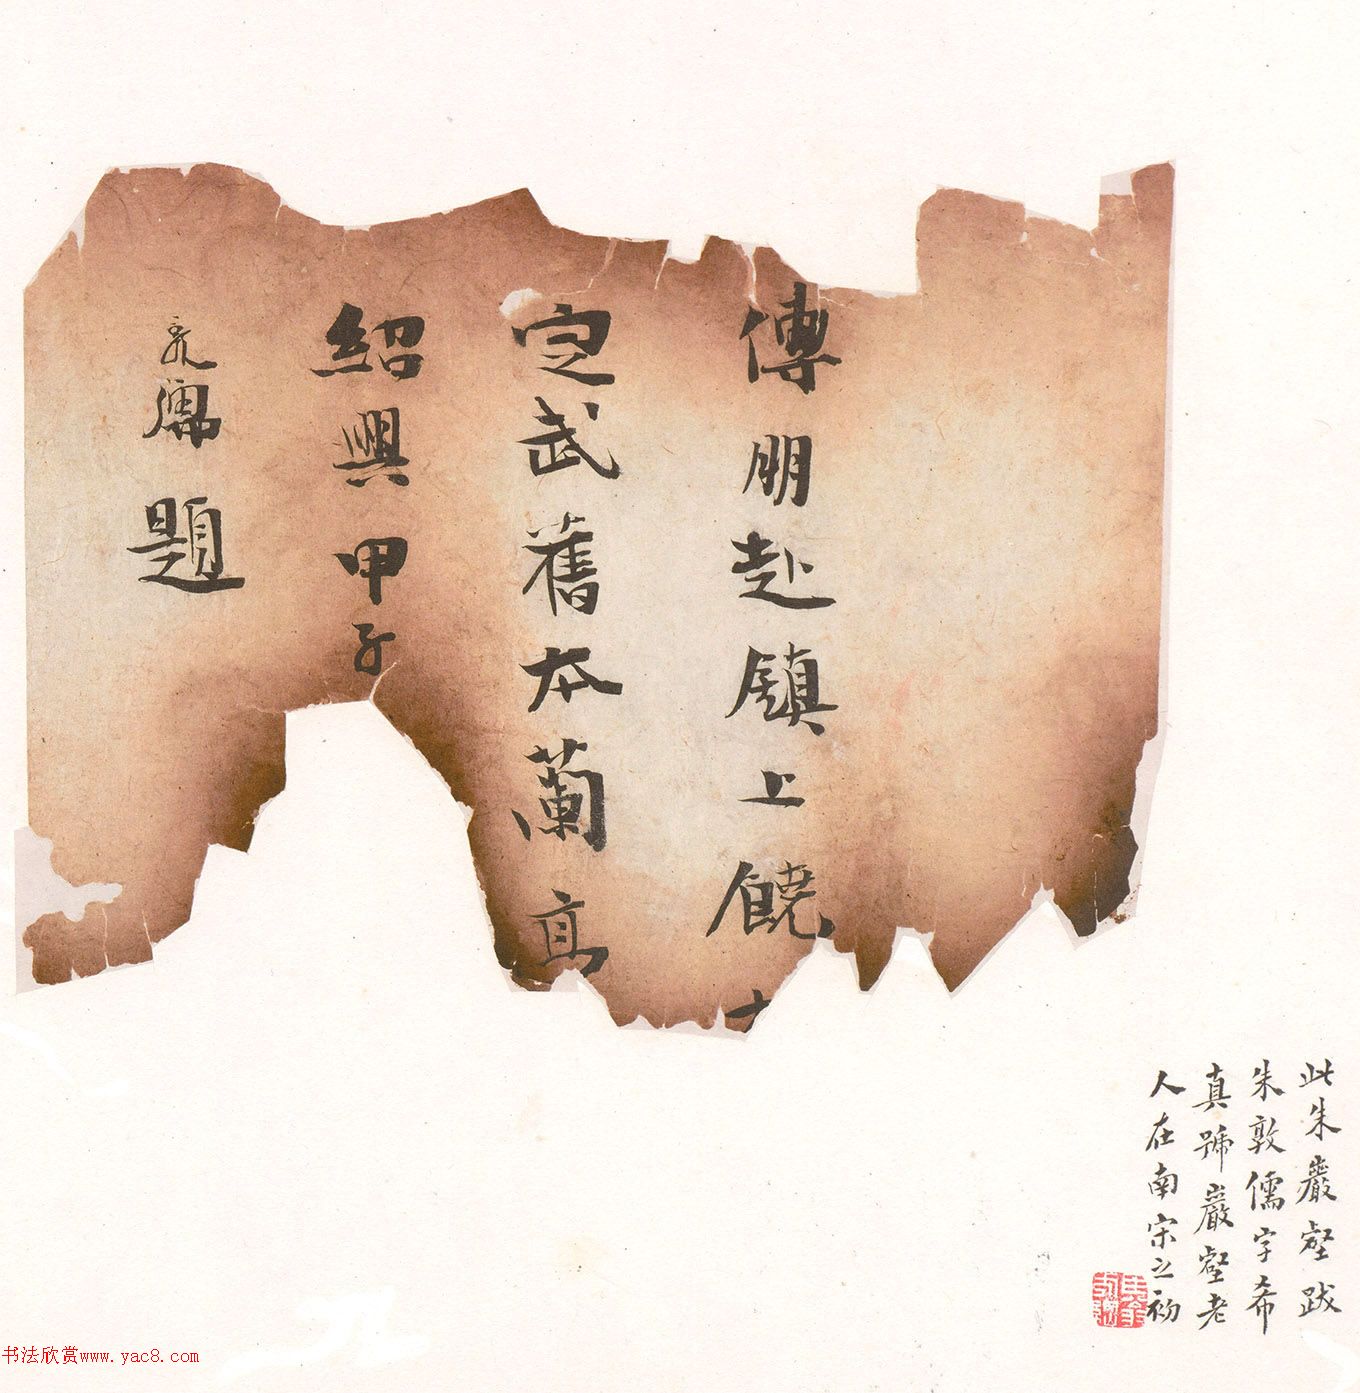 傳朋赴鎮上饒
定武舊本蘭亭
紹興甲子
題
此朱巖壑跋
朱敦儒字希
真號巖壑老
人在南宋之初
书法欣赏www.yac8.com